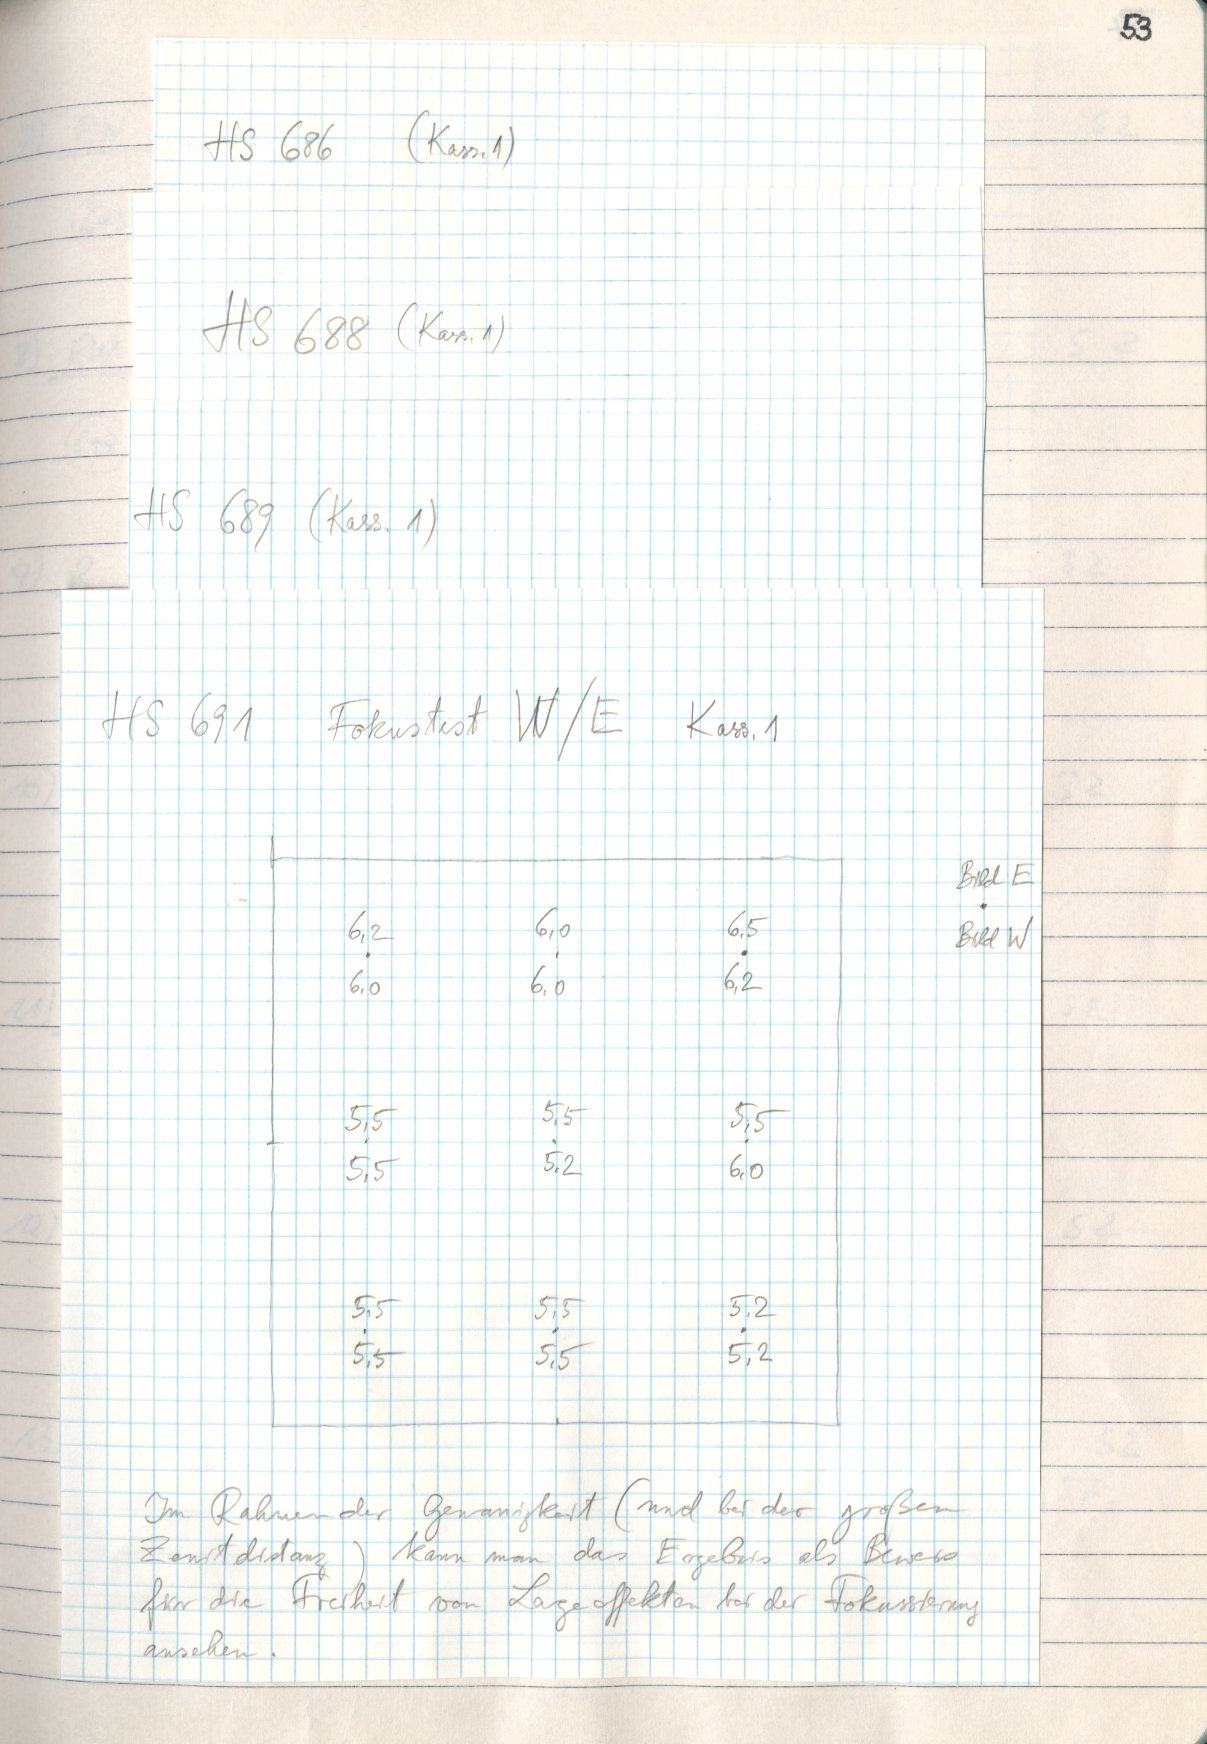 53
HS 686 (Kass. 1)
HS 688 (Kass. 1)
HS 689 (Kass. 1)
HS 691 Fokustest W/E Kass. 1
Bild E
Bild W
6,2 6,0 6,5
6,0 6,0 6,2
5,5 5,5 5,5
5,5 5,2 6,0
5,5 5,5 5,2
5,5 5,5 5,2
Im Rahmen der Genauigkeit (und bei der großen
Zenitdistanz) kann man das Ergebnis als Beweis
für die Freiheit von Lageeffekten bei der Fokussierung
ansehen.